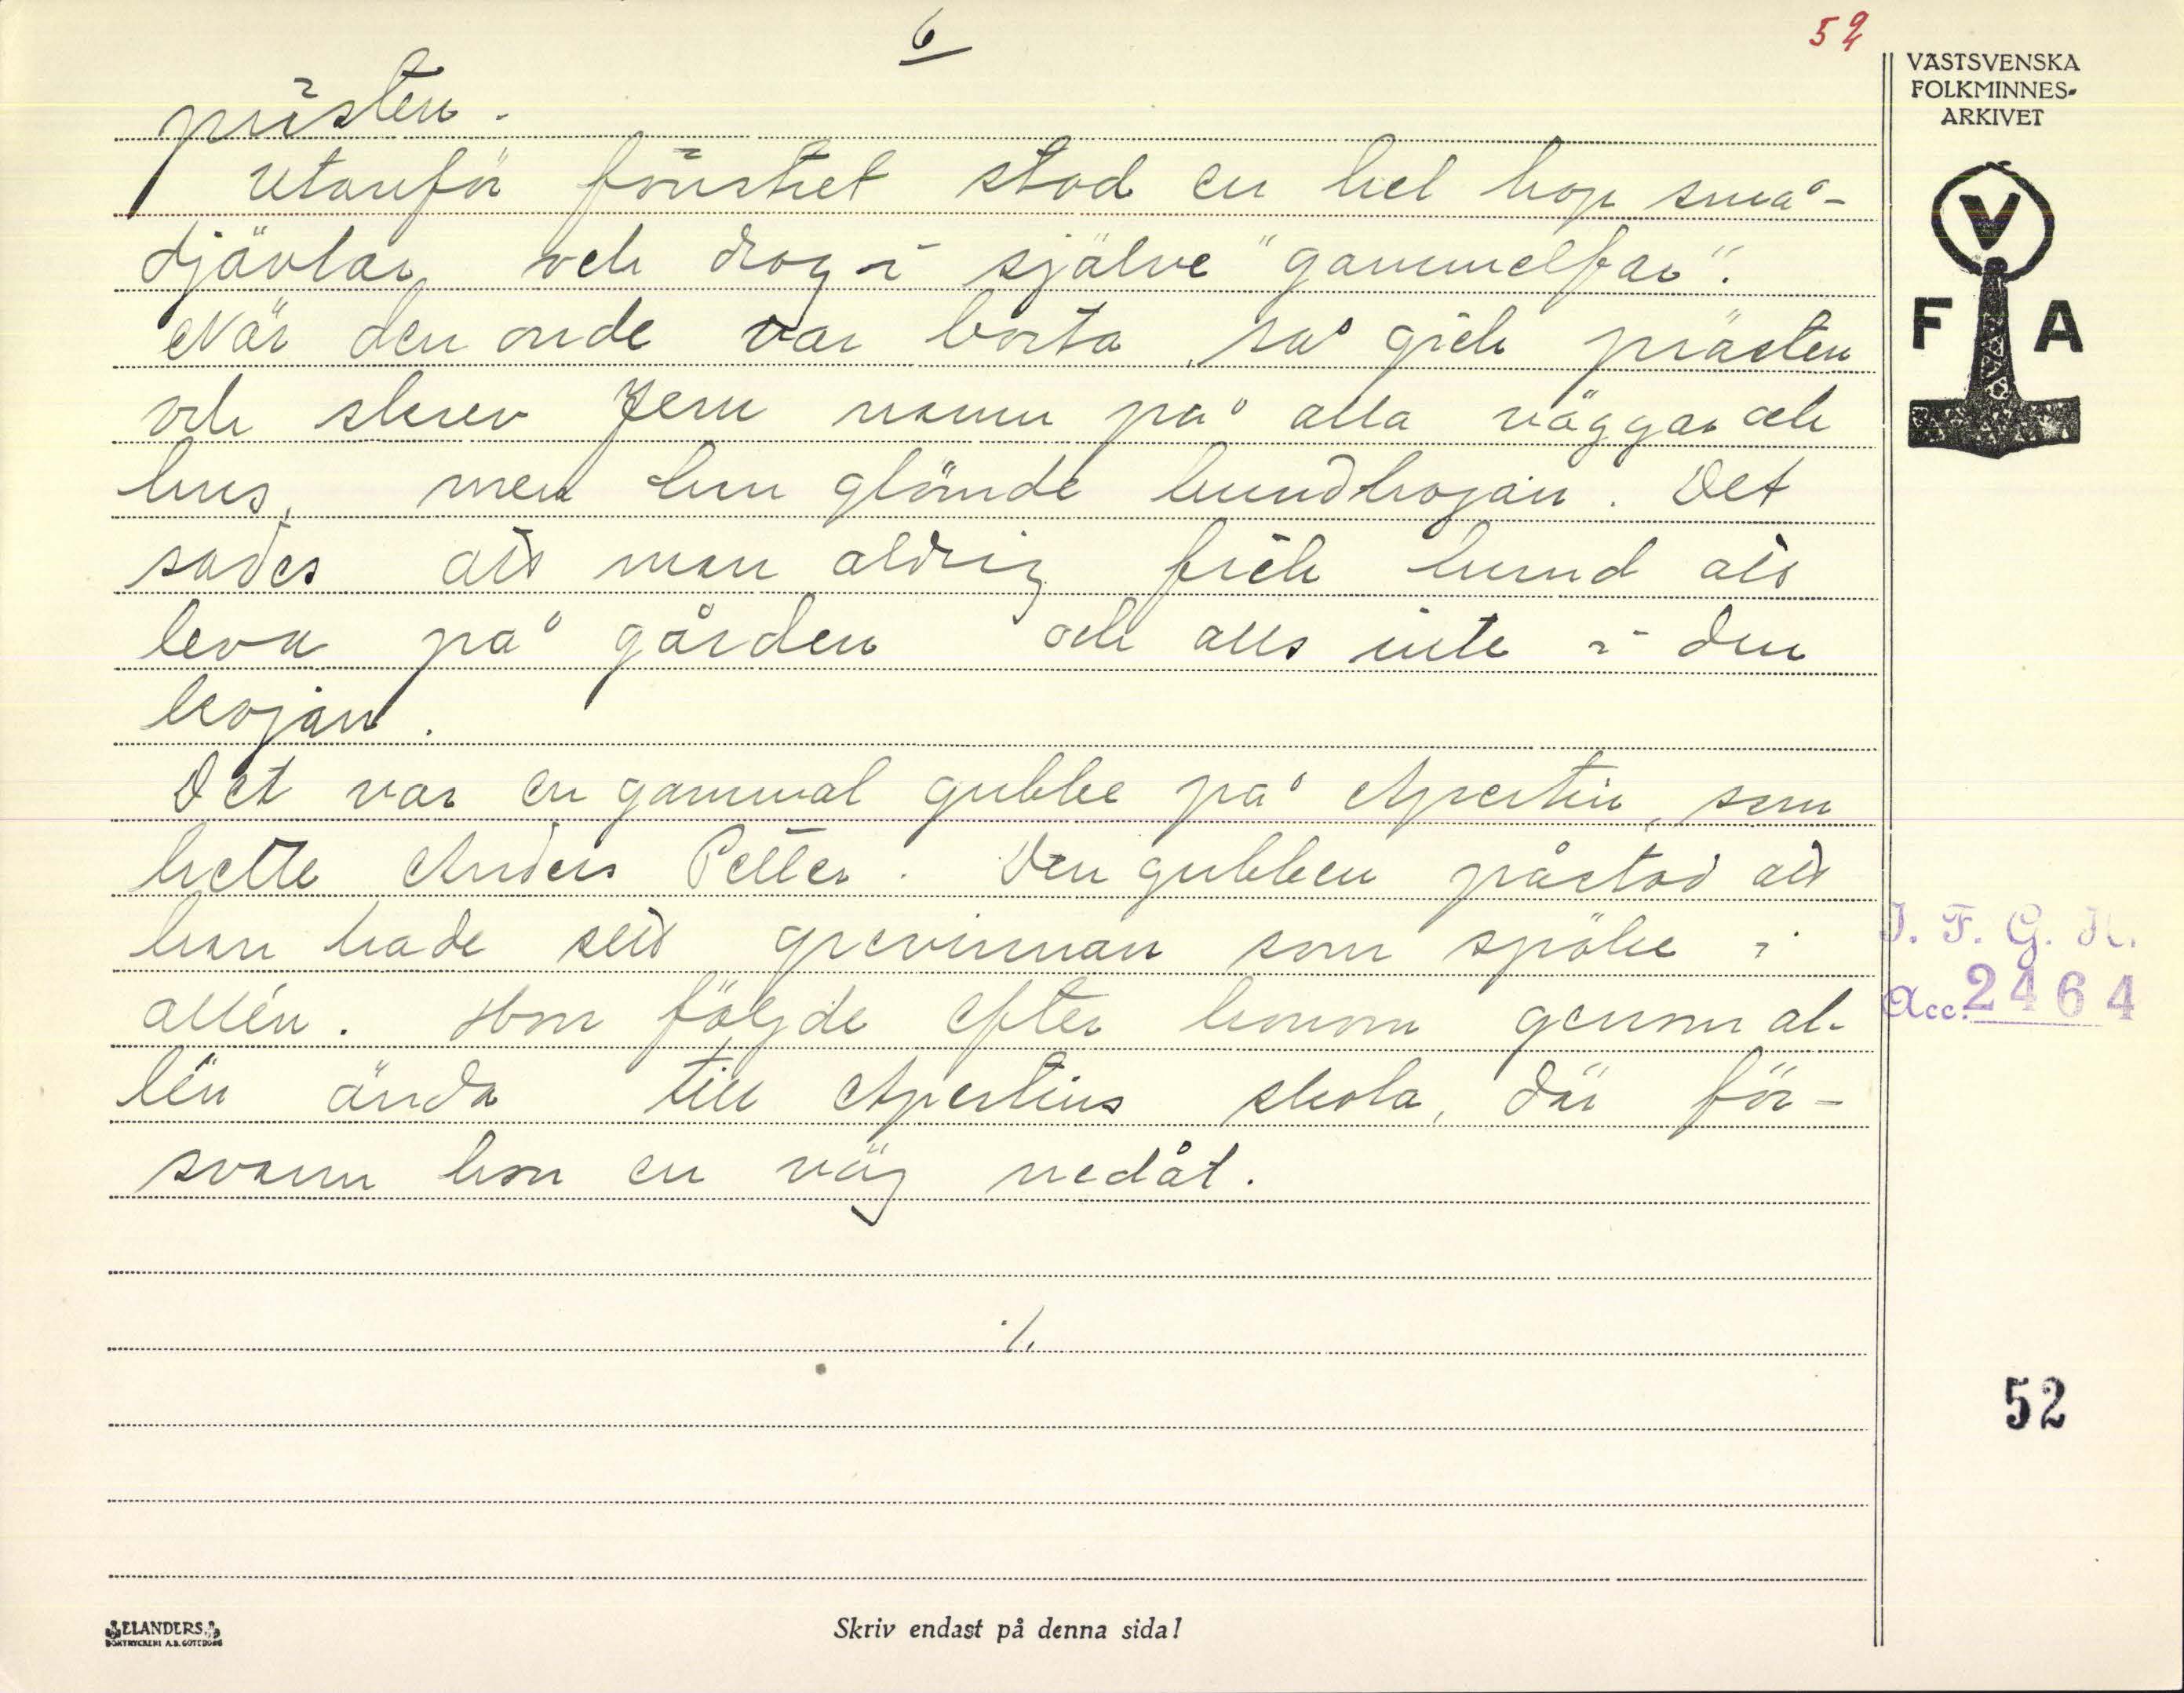 6
52
VÄSTSVENSKA
FOLKMINNES-
ARKIVET
prästen.
Utanför fönstret stod en hel hop små-
djävlar och drog i självе "gammelfar".
När den onde var borta, så gick prästen
och skrev Jesu namn på alla väggar och
hus, men han glömde hundkojan. Det
sades att man aldrig fick hund att
leva på gården och alls inte i den
kojan.
Det var en gammal gubbe på Apertin, som
hette Anders Petter. Den gubben påstod att
han hade sett grevinnan som spöke i
allén. Hon följde efter honom genom al-
lén ända till Apertins skola, där för-
svann hon en väg nedåt.
./.
V
F A
I. F. G. H.
Acc. 2464
52
ELANDERS
BOKTRYCKERI A.B. GÖTEBORG
Skriv endast på denna sida!